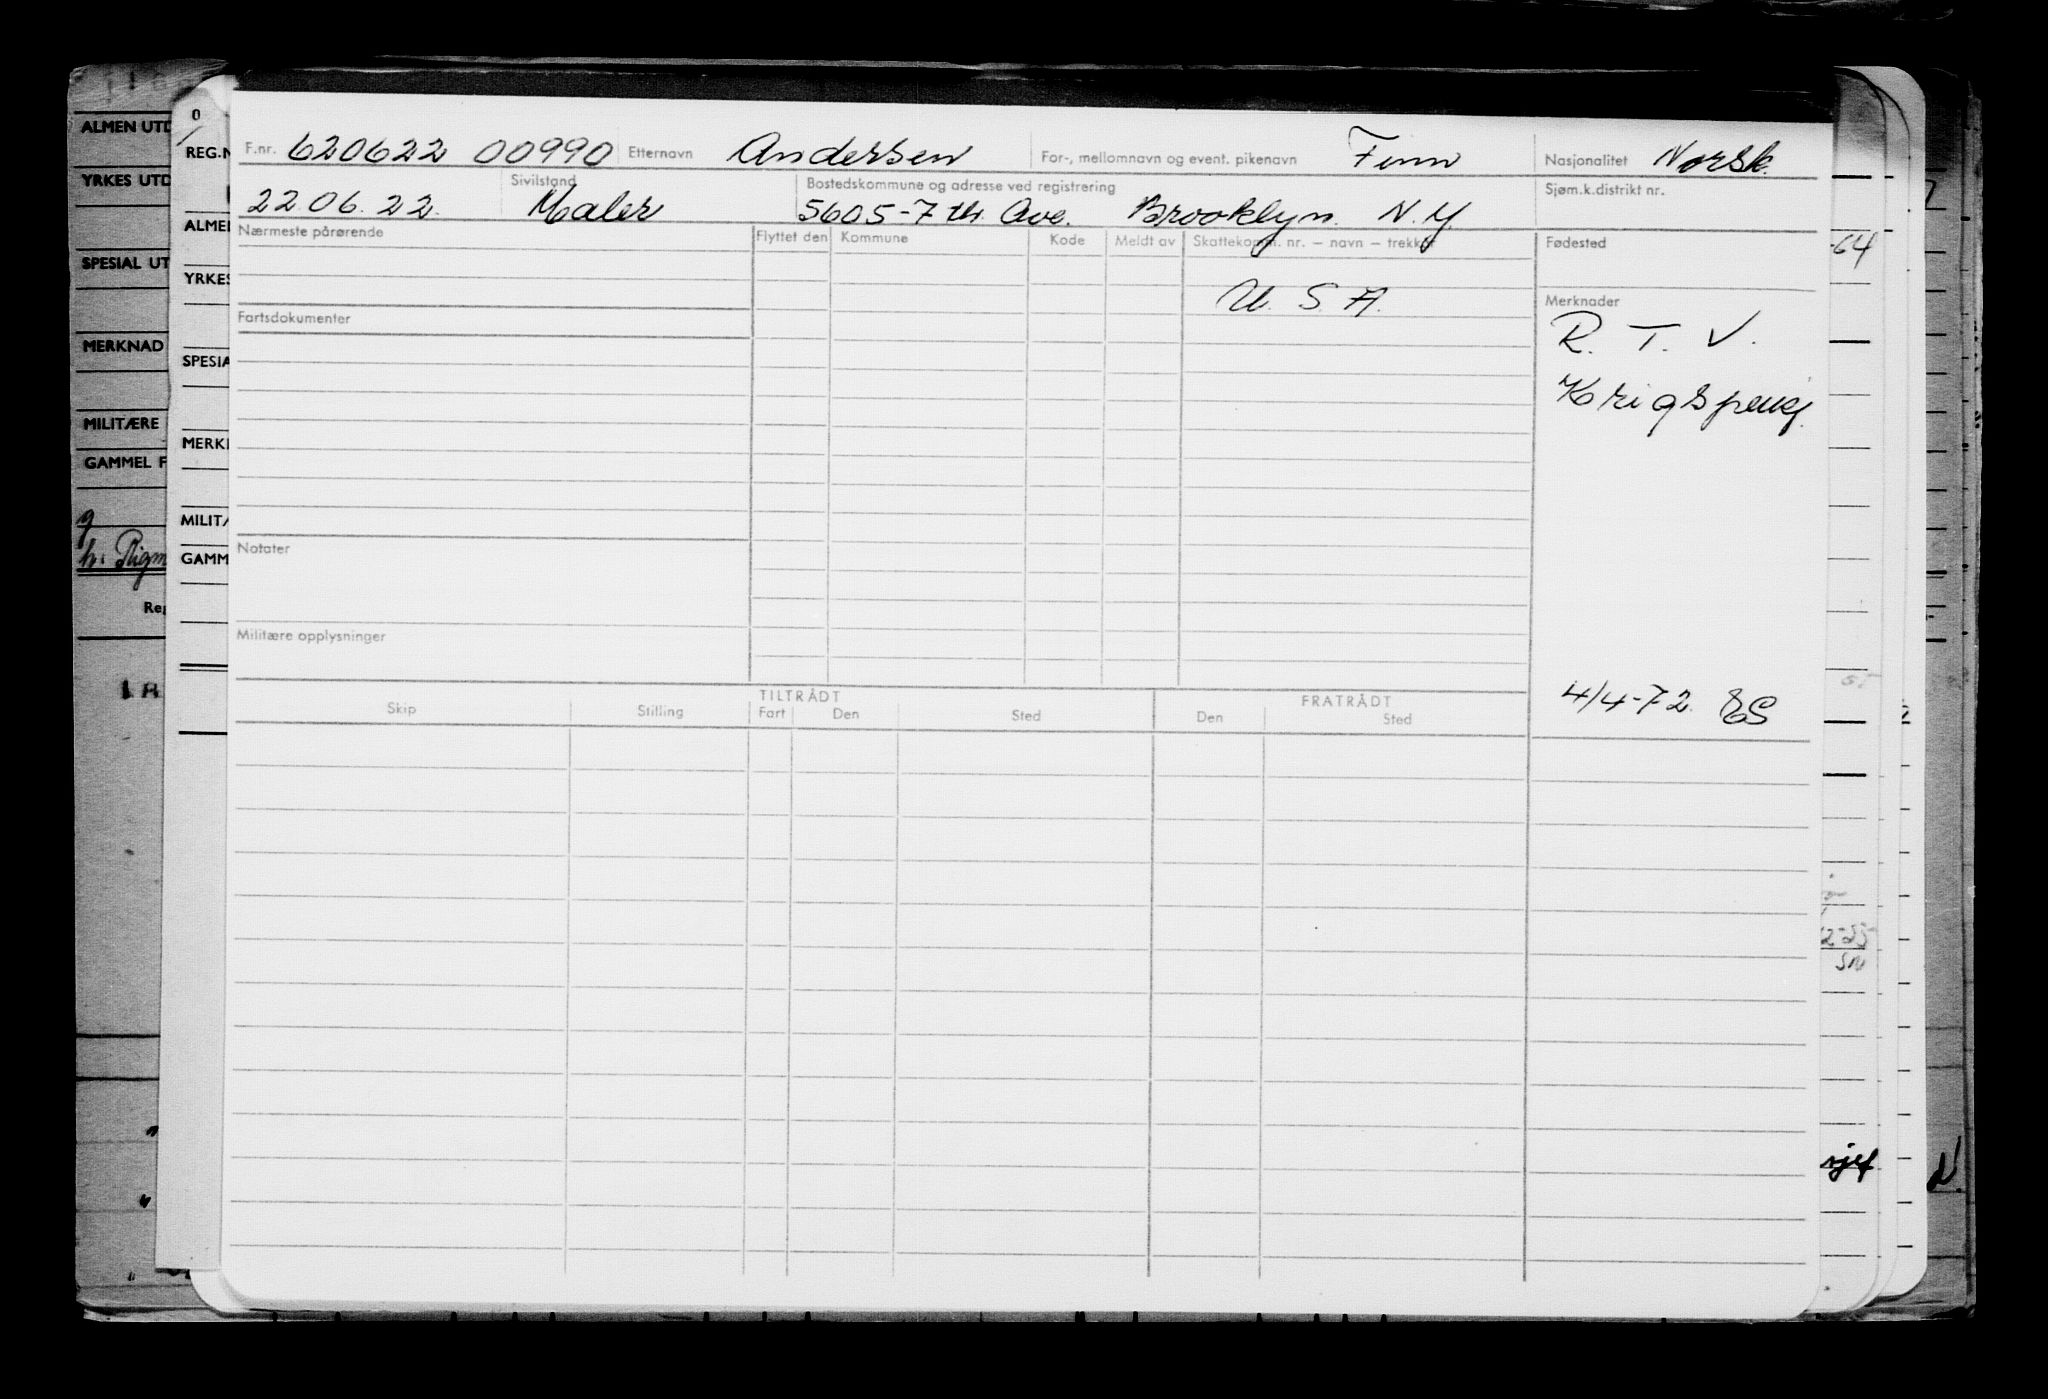 ALMEN UTD
YRKES UTD
SPESIAL UT
MERKNAD
MILITÆRE
GAMMEL F
h. Rigm
Reg
18
0
REG.N
ALME
YRKES
SPESIA
MERK
MILITÆ
GAMM
F.nr. 620622 00990 Etternavn Andersen For-, mellomnavn og event. pikenavn Finn Nasjonalitet Norsk.
22.06.22. Sivilstand Maler Bostedskommune og adresse ved registrering 5605-7th. Ave. Brooklyn. N.Y. Sjøm.k.distrikt nr.
Nærmeste pårørende Flyttet den Kommune Kode Meldt av Skattekomm. nr. – navn – trekker Fødested
U. S. A.
Merknader
R. T. V.
Krigspensj.
Fartsdokumenter
Notater
Militære opplysninger
4/4-72. ES
TILTRÅDT FRATRÅDT
Skip Stilling Fart Den Sted Den Sted
-64
2-25
SM